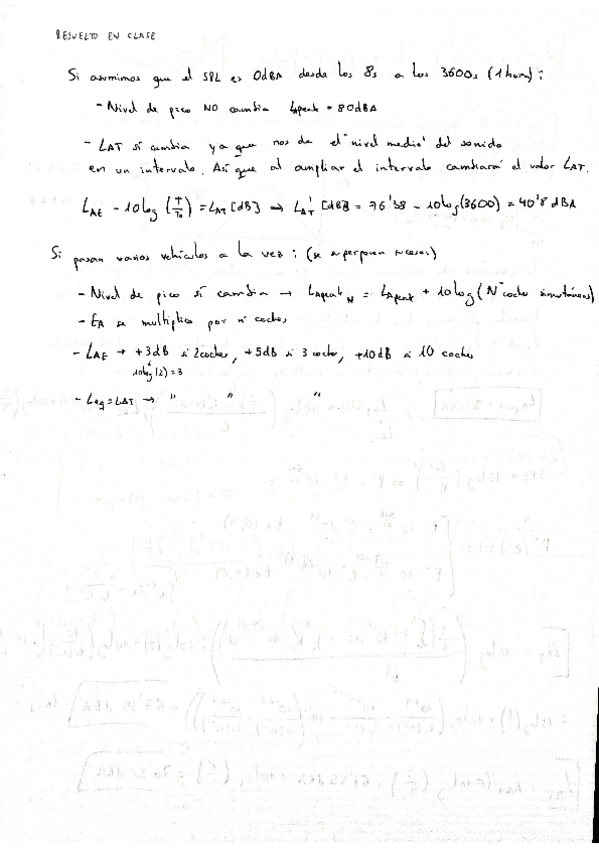 RESUELTO EN CLASE
Si asumimos que el SPL es 0dBA desde los 8s a los 3600s (1 hora):
- Nivel de pico NO cambia LApeak = 80dBA
- LAT sí cambia ya que nos da el "nivel medio" del sonido
en un intervalo. Así que al ampliar el intervalo cambiará el valor LAT.
LAE - 10log (T/To) = LAT [dB] → LAT' [dBA] = 76'38 - 10log(3600) = 40'8 dBA
Si pasan varios vehículos a la vez: (se superponen sucesos)
- Nivel de pico sí cambia → LApeakN = LApeak + 10log(Nº coches simultáneos)
- EA se multiplica por nº coches
- LAE → +3dB si 2 coches, +5dB si 3 coches, +10dB si 10 coches
10log(2)=3
- Leq=LAT → " " "